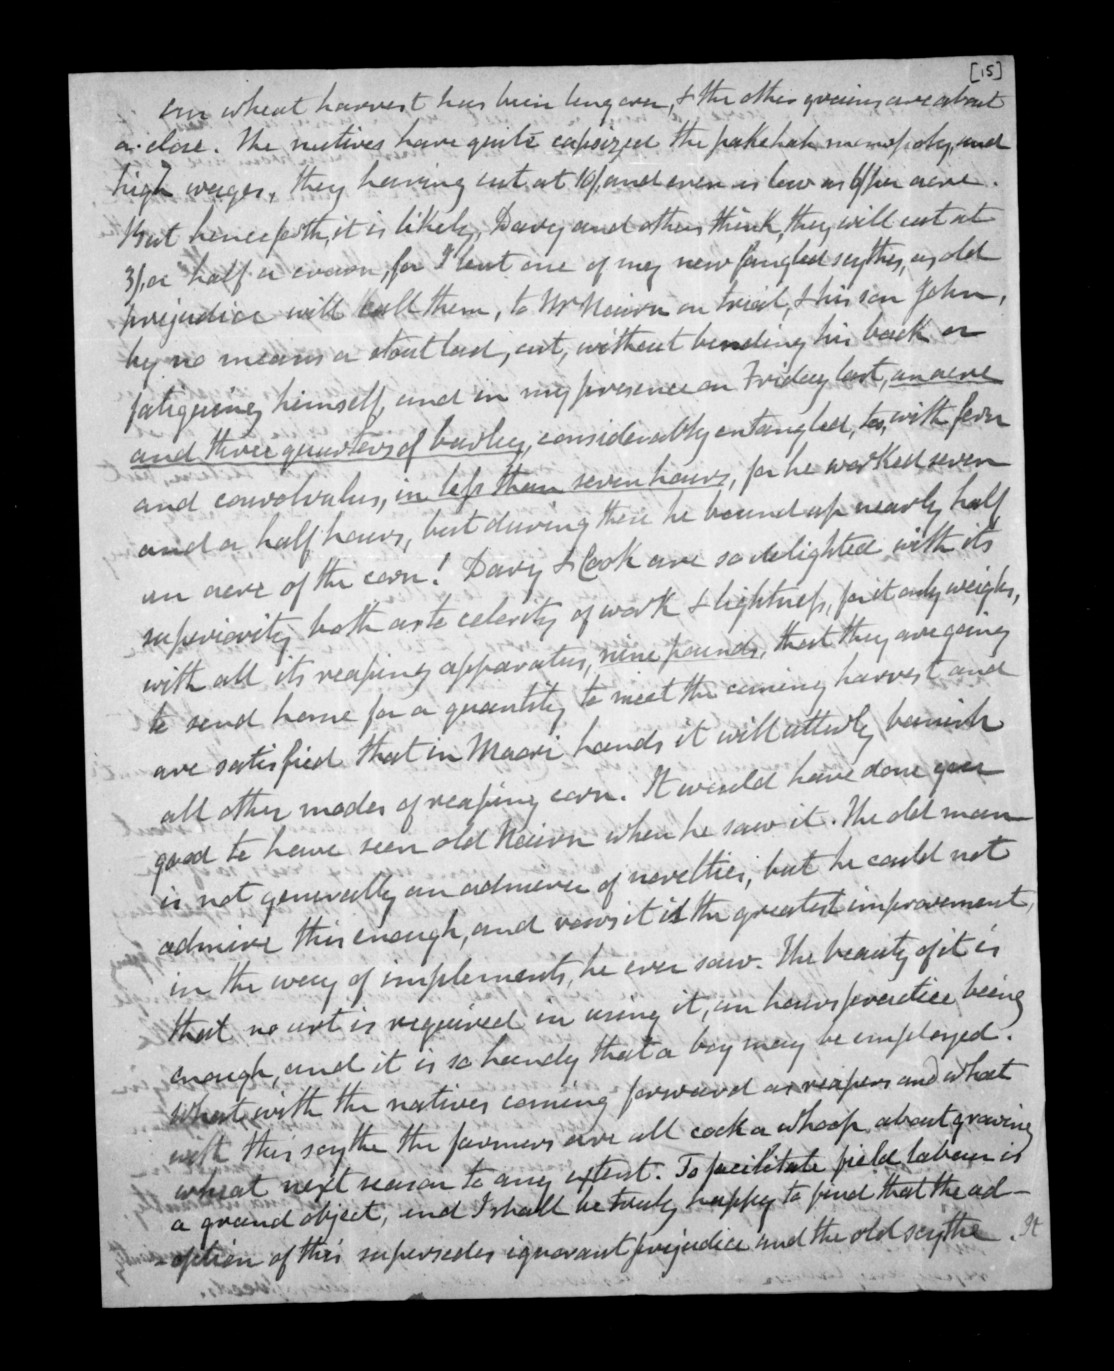 [15]
Our wheat harvest has been long over, & the other grains are about
a close. The natives have quite capsized the pakehah monopoly, and
high wages, they having cut at 10/, and even as low as 6/ per acre.
But henceforth, it is likely, Davy and others think, they will cut at
3/, or half a crown, for I lent one of my new fangled scythes, as old
prejudice will call them, to Mr Nairn on trial, & his son John,
by no means a stout lad, cut, without bending his back or
fatigueing himself, and in my presence on Friday last, an acre
and three quarters of barley, considerably entangled, too, with fern
and convolvulus, in less than seven hours, for he worked seven
and a half hours, but during these he bound up nearly half
an acre of the corn! Davy & Cook are so delighted with its
superiority both as to celerity of work & lightness, for it only weighs,
with all its reaping apparatus, nine pounds, that they are going
to send home for a quantity to meet the coming harvest and
are satisfied that in Maori hands it will utterly banish
all other modes of reaping corn. It would have done your
good to have seen old Nairn when he saw it. The old man
is not generally an admirer of novelties, but he could not
admire this enough, and vows it is the greatest improvement,
in the way of implements, he ever saw. The beauty of it is
that no art is required in using it, an hours practice being
enough, and it is so handy that a boy may be employed.
What with the natives coming forward as reapers and what
with this scythe the farmers are all cock a whoop about growing
wheat next season to any extent. To facilitate field labour is
a grand object, and I shall be truly happy to find that the ad-
-option of this supersedes ignorant prejudice and the old scythe. It